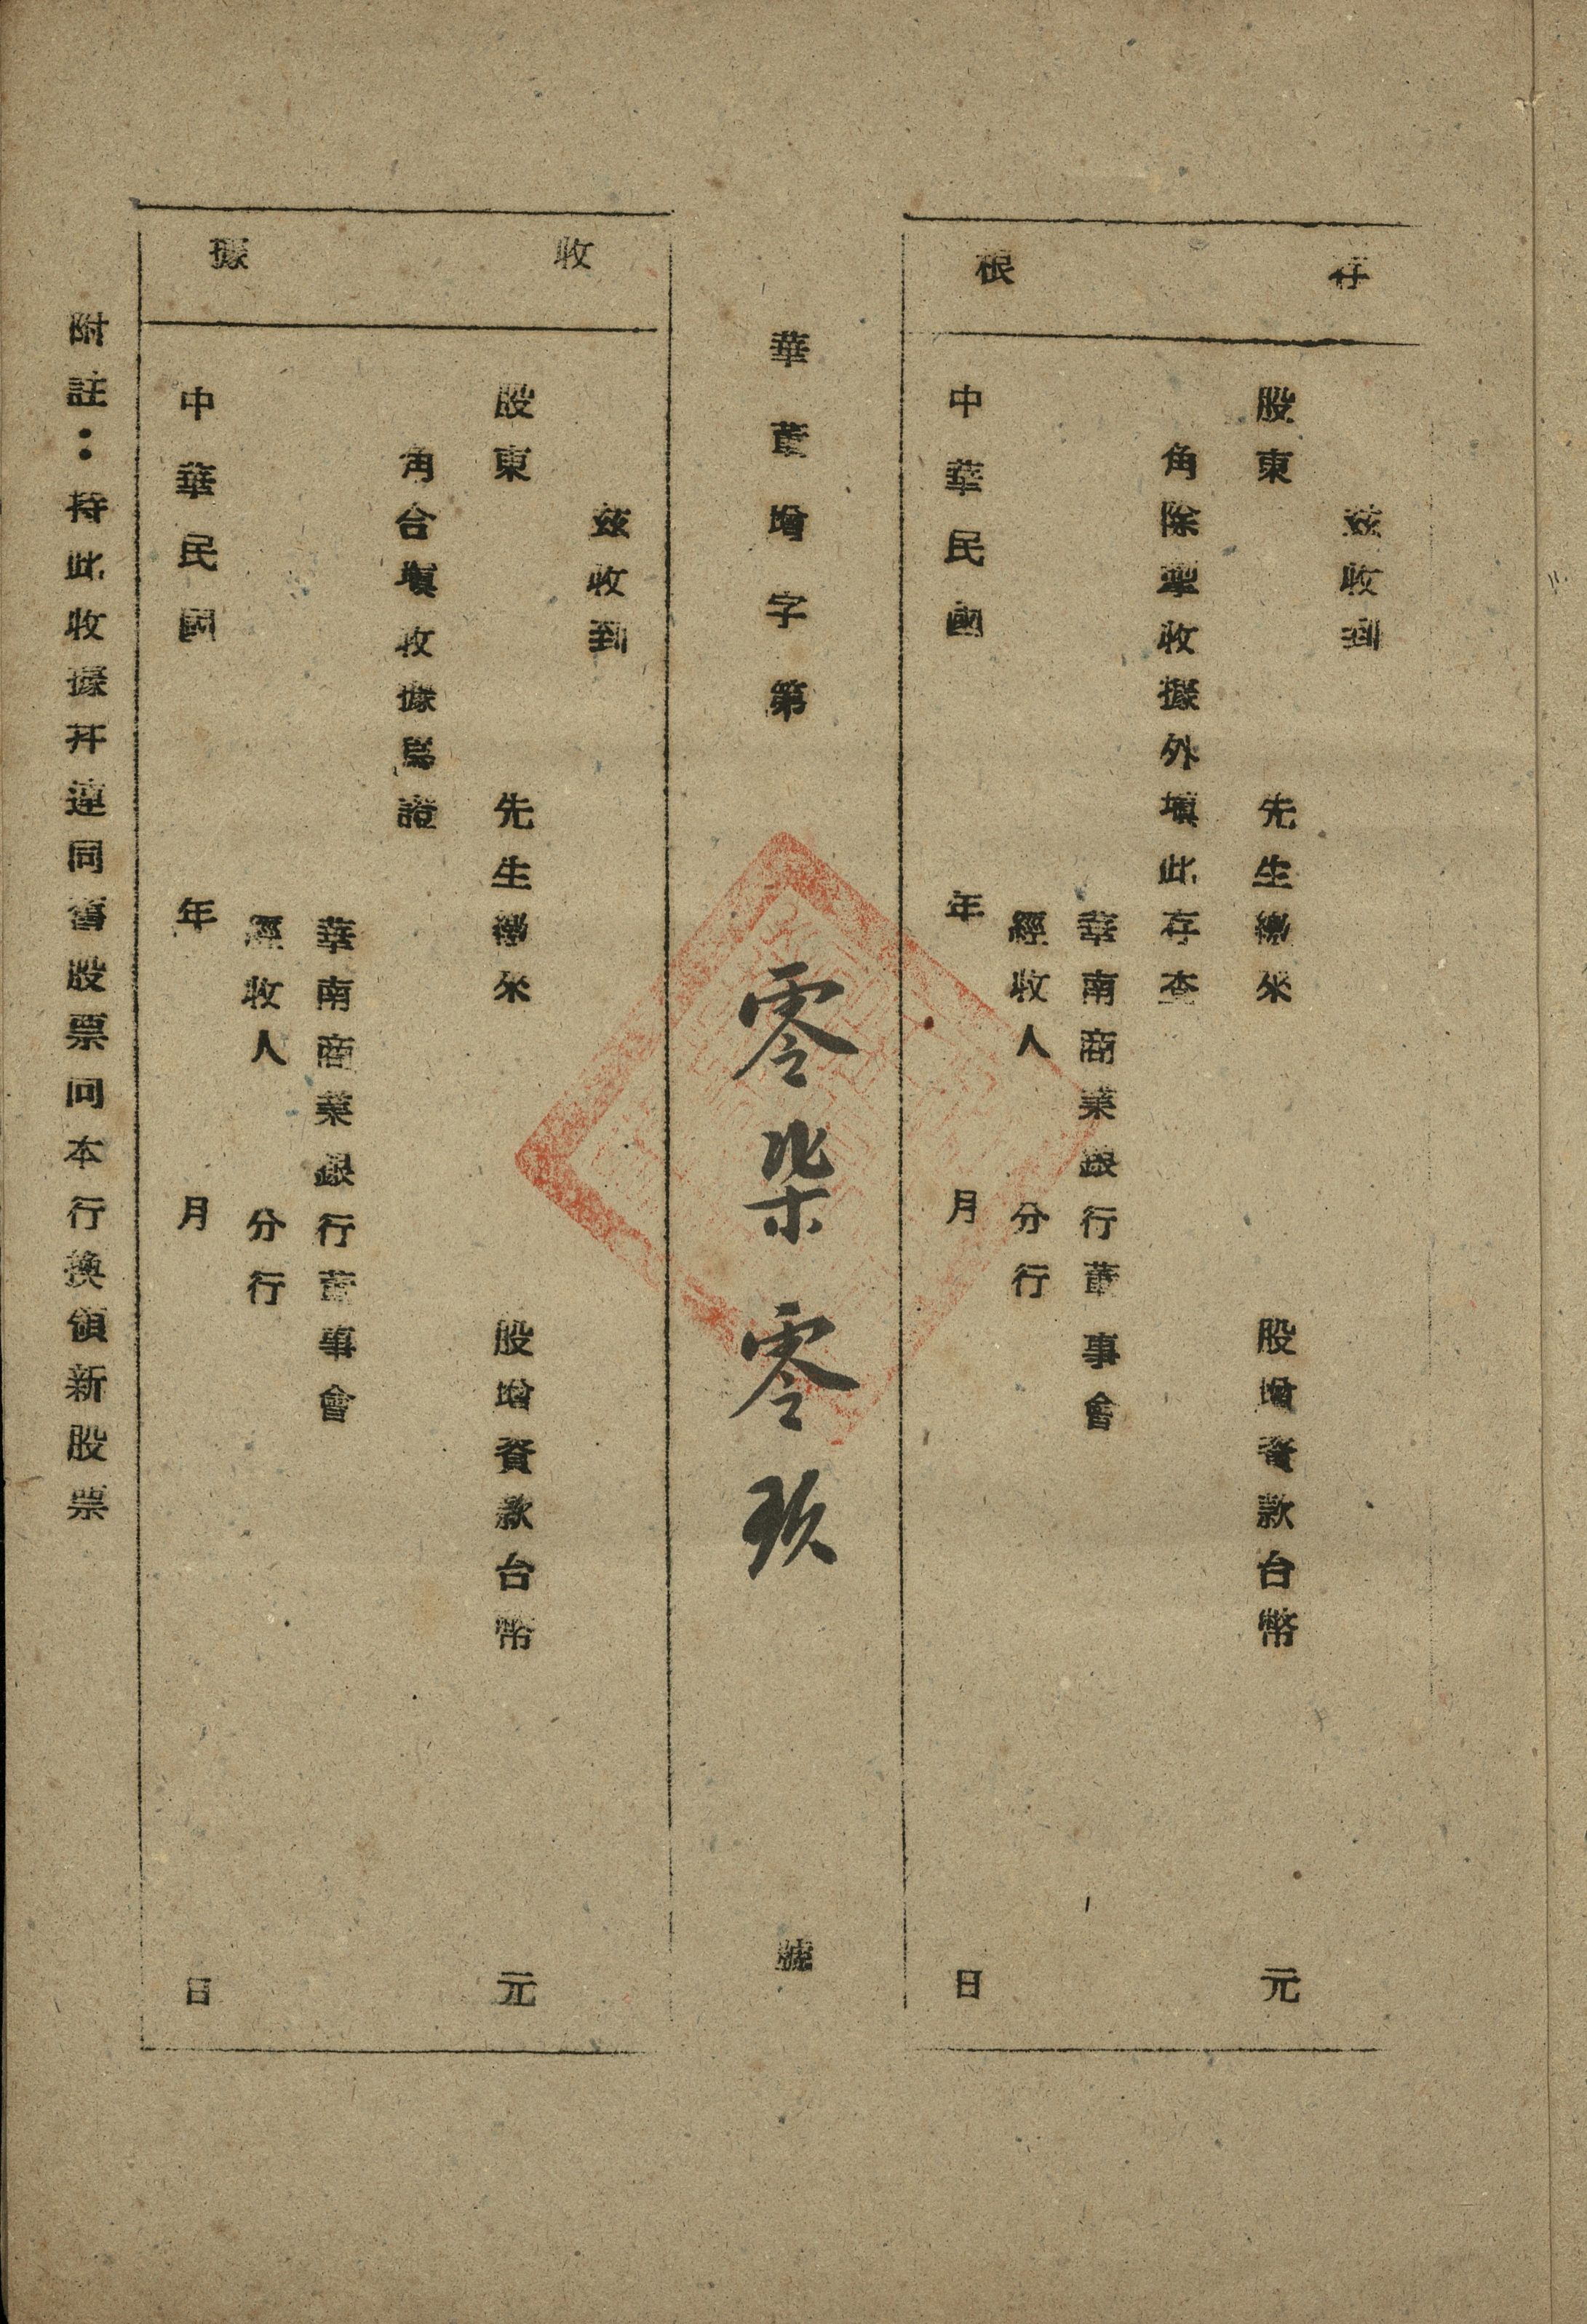 存根
茲收到
股東 先生繳來 股增資款台幣 元
角除掣收據外填此存查
華南商業銀行董事會
經收人 分行
中華民國 年 月 日
華董增字第 零柒零零玖 號
收據
茲收到
股東 先生繳來 股增資款台幣 元
角合填收據爲證
華南商業銀行董事會
經收人 分行
中華民國 年 月 日
附註：持此收據幷連同舊股票向本行換領新股票